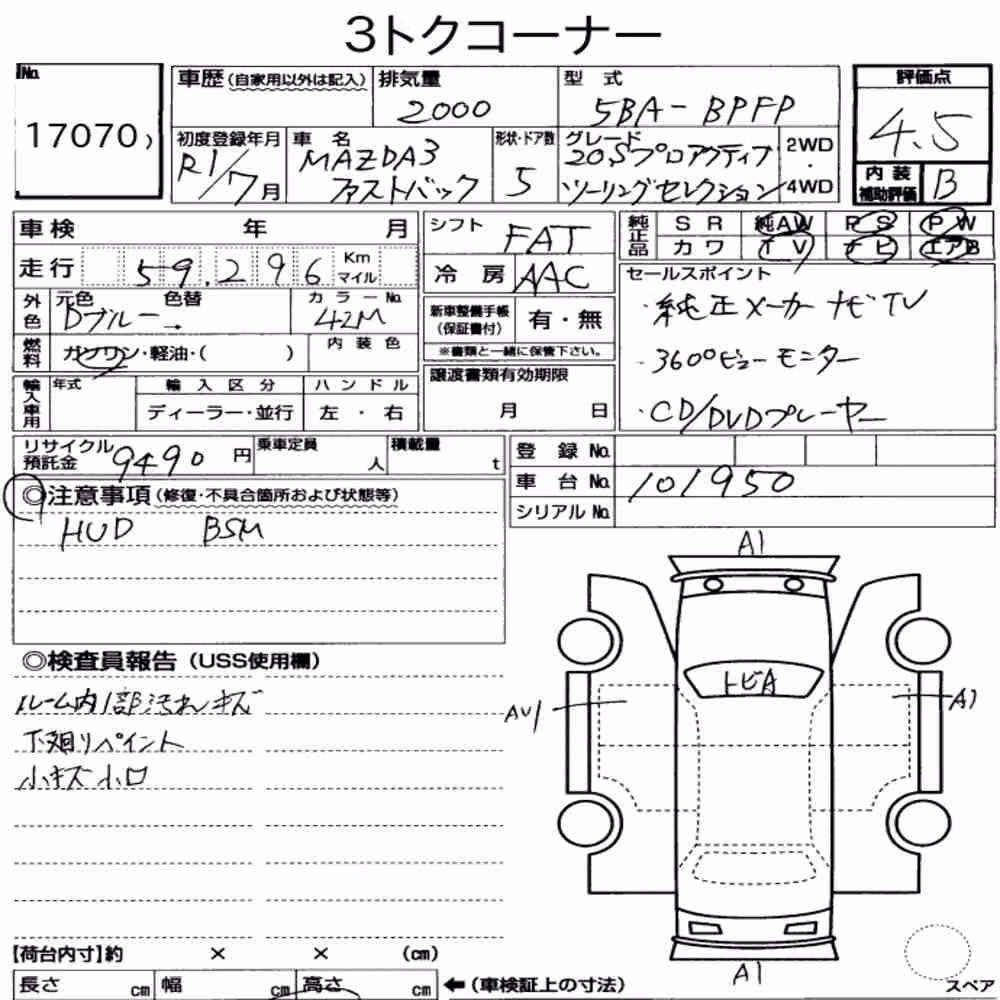 3トクコーナー
No.
17070)
車歴(自家用以外は記入)
排気量
2000
型 式
5BA-BPFP
評価点
4.5
初度登録年月
R1/7月
車 名
MAZDA3
ファストバック
形状・ドア数
5
グレード
20Sプロアクティブ
ツーリングセレクション
2WD
・
4WD
内 装
補助評価
B
車検 年 月
シフト
FAT
純正品
SR 純AW PS PW
カワ TV ナビ エアB
走行
59,296
Km
マイル
冷 房
AAC
セールスポイント
・純正メーカーナビTV
・360°ビューモニター
・CD/DVDプレーヤー
外色
元色 色替
Dブルー→
カラーNo.
42M
新車整備手帳
(保証書付)
有・無
※書類と一緒に保管下さい。
燃料
ガソリン・軽油・( )
内装色
譲渡書類有効期限
月 日
輸入車用
年式
輸入区分
ハンドル
ディーラー・並行
左 ・ 右
リサイクル
預託金
9490円
乗車定員
人
積載量
t
登 録 No.
車 台 No.
101950
シリアル No.
◎注意事項(修復・不具合箇所および状態等)
HUD BSM
◎検査員報告(USS使用欄)
ルーム内1部汚れキズ
下廻りペイント
小キズ小凹
A1
トビA
AU1
A1
A1
【荷台内寸】約 × × (cm)
長さ cm
幅 cm
高さ cm
←(車検証上の寸法)
スペア